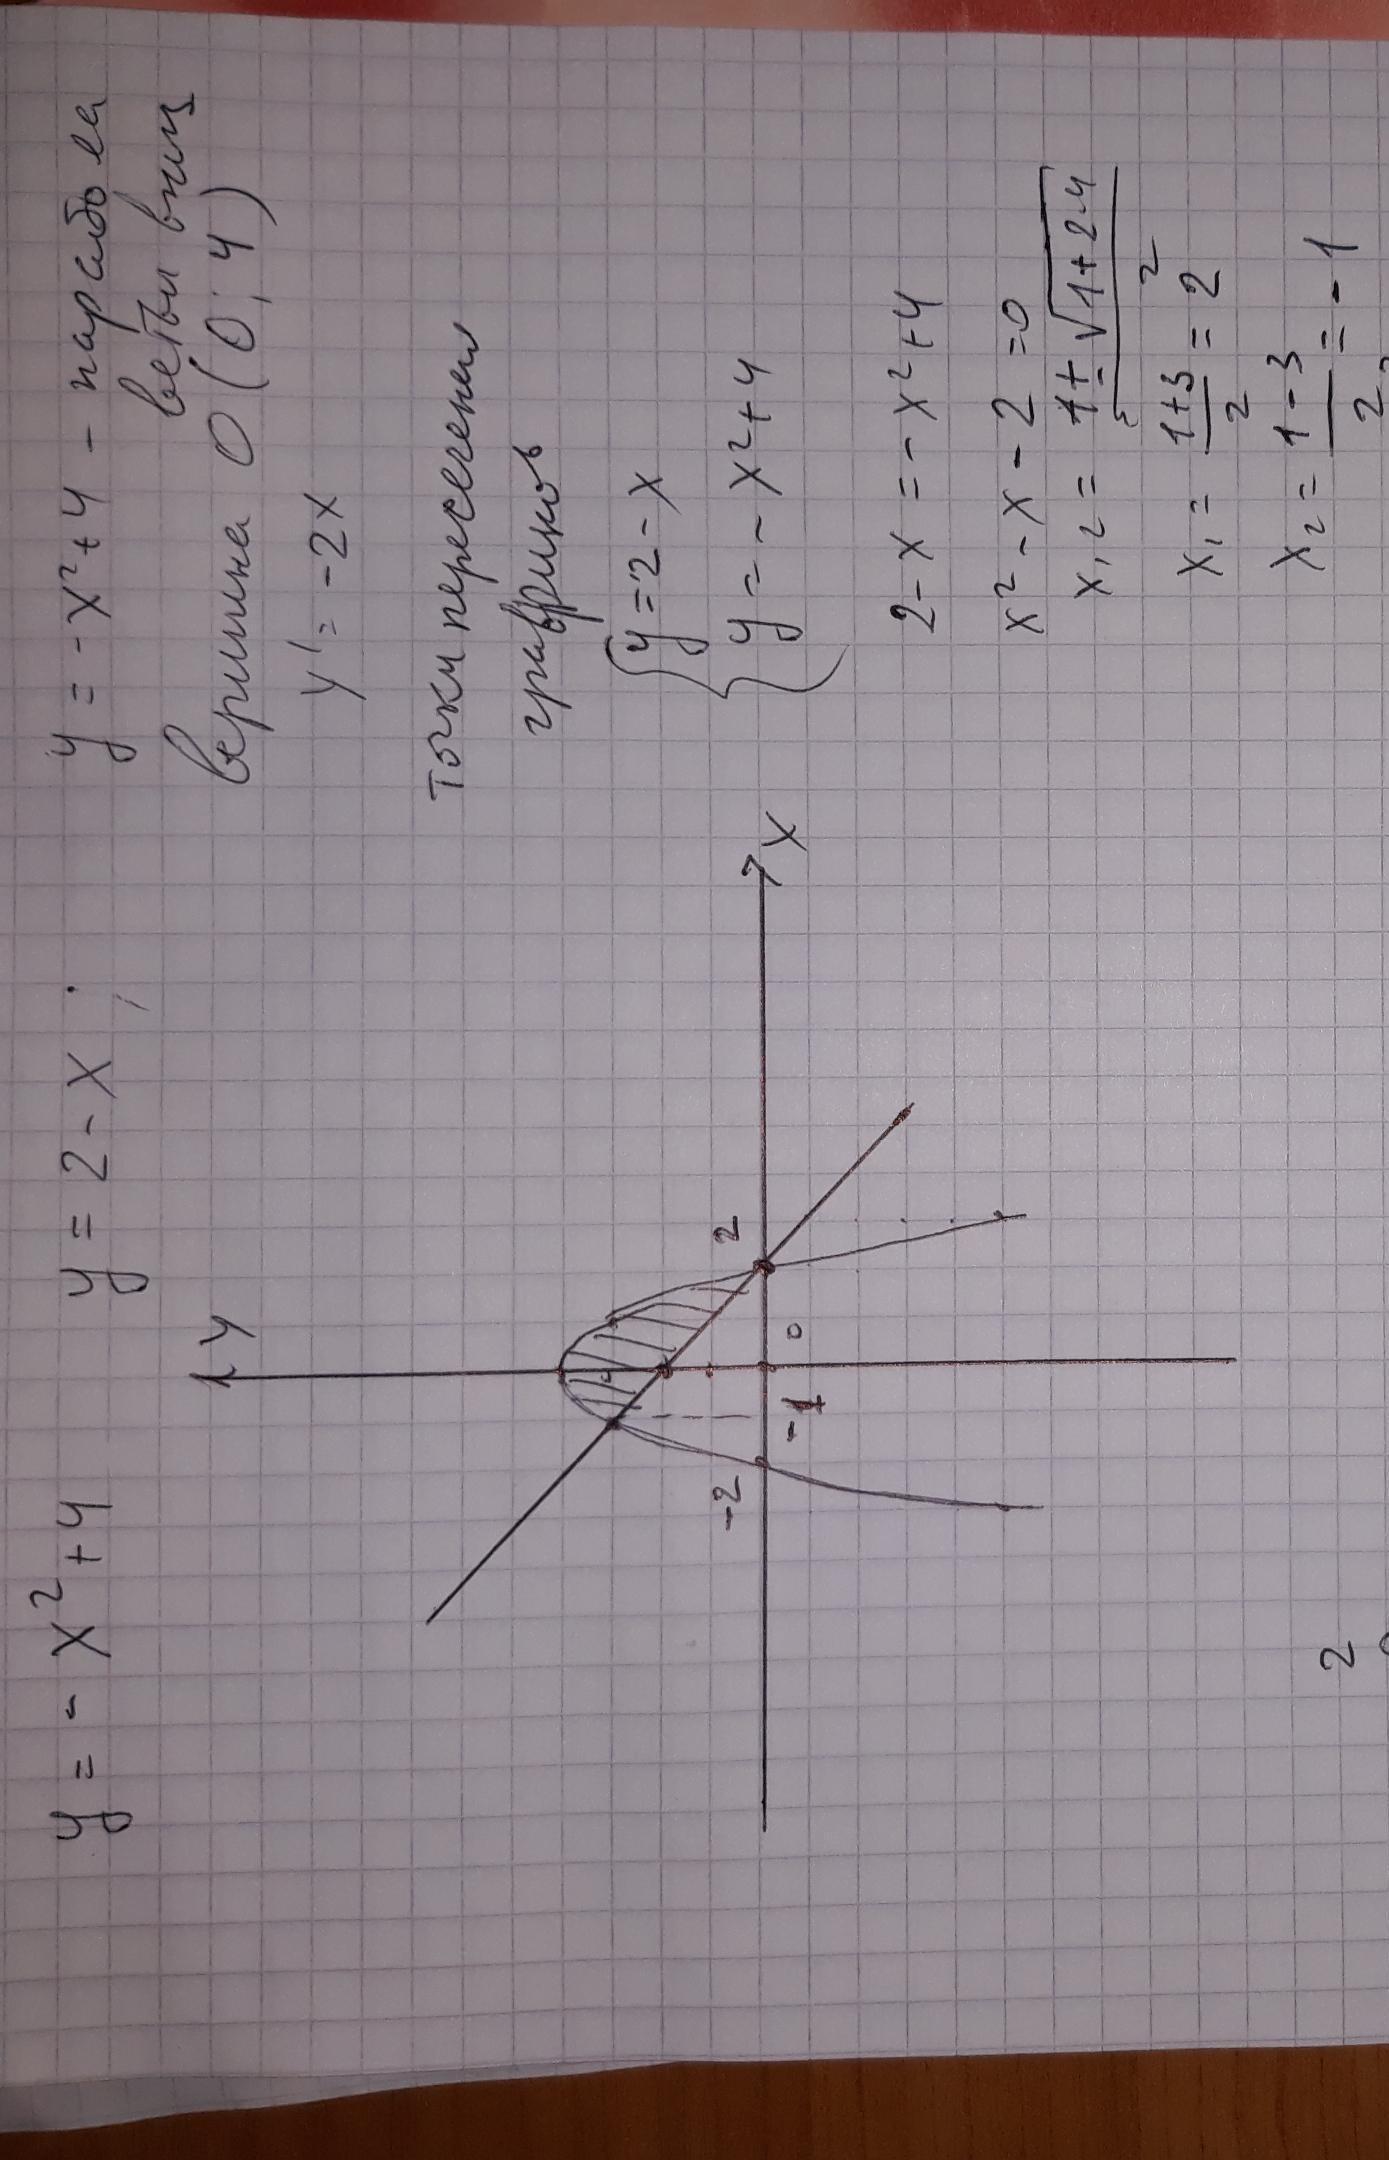 y = - x² + 4
y = 2 - x ;
y = - x² + 4 - парабола
ветви вниз
вершина O (0; 4)
y' = - 2x
точки пересечения
графиков
y = 2 - x
y = - x² + 4
2 - x = - x² + 4
x² - x - 2 = 0
x₁,₂ = 1 ± √1 + 24
2
x₁ = 1 + 3 = 2
2
x₂ = 1 - 3 = - 1
2
y
x
-2
-1
0
2
2